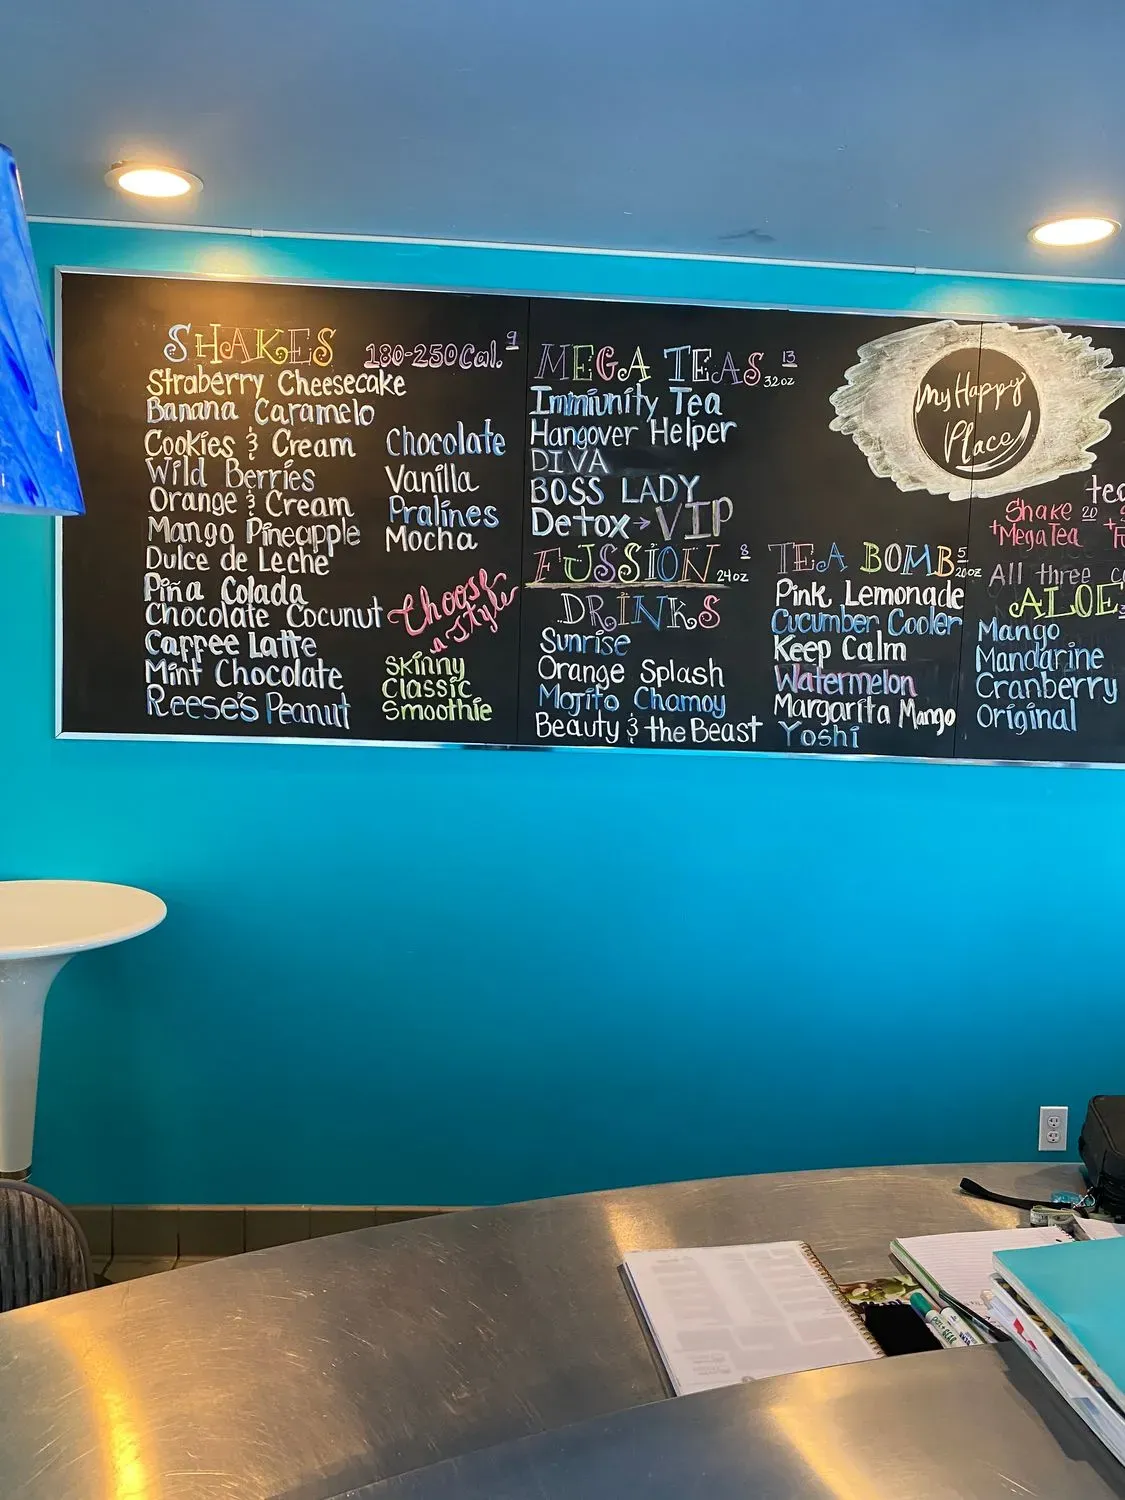 SHAKES 180-250Cal. 9
Straberry Cheesecake
Banana Caramelo
Cookies & Cream
Wild Berries
Orange & Cream
Mango Pineapple
Dulce de Leche
Piña Colada
Chocolate Coconut
Caffee Latte
Mint Chocolate
Reese's Peanut
Chocolate
Vanilla
Pralines
Mocha
Choose
a Style
Skinny
Classic
Smoothie
MEGA TEAS 13
32oz
Immiunity Tea
Hangover Helper
DIVA
BOSS LADY
Detox → VIP
FUSSION 8
24oz
DRINKS
Sunrise
Orange Splash
Mojito Chamoy
Beauty & the Beast
TEA BOMB 5
20oz
Pink Lemonade
Cucumber Cooler
Keep Calm
Watermelon
Margarita Mango
Yoshi
My Happy
Place
Shake 20
+Mega Tea
All three
ALOE
Mango
Mandarine
Cranberry
Original